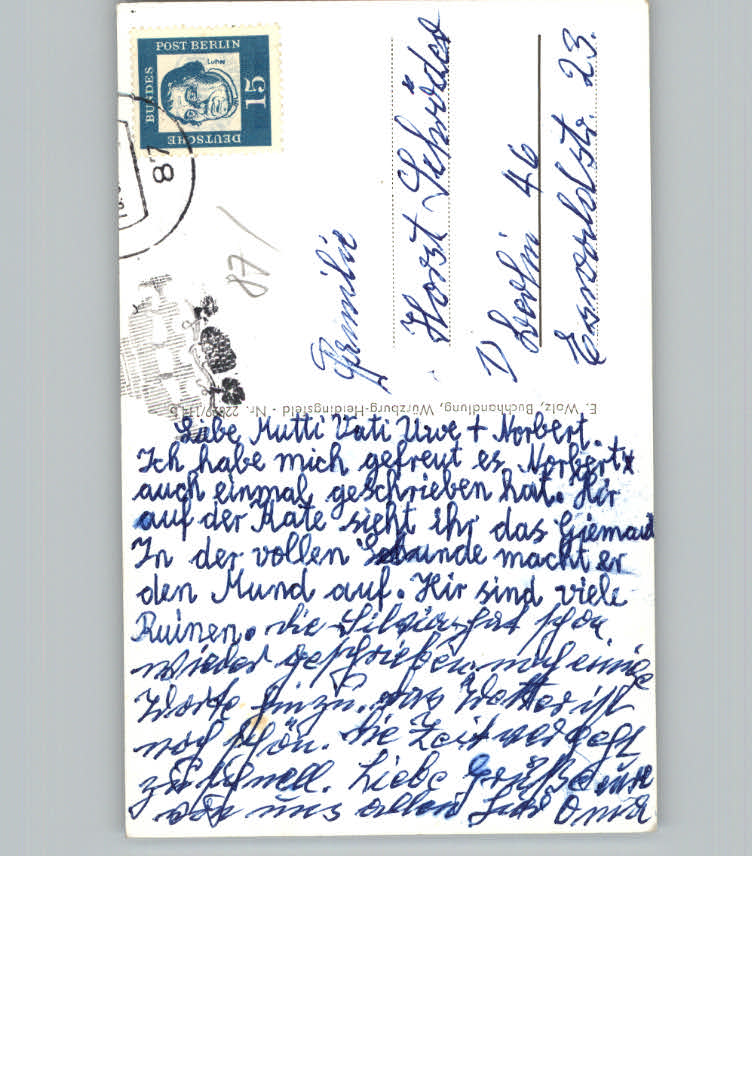 DEUTSCHE
BUNDES
POST BERLIN
15
Luther
87
87/
Familie
Horst Schröder
1 Berlin 46
23.
E. Walz, Buchhandlung, Würzburg-Heidingsfeld - Nr.
Liebe Mutti Vati Uwe + Norbert.
Ich habe mich gefreut es Norbert
auch einmal geschrieben hat. Hir
auf der Kate sieht ihr das
In der vollen macht er
den Mund auf. Hir sind viele
Ruinen. die Silvia hat schon
wieder geschrieben. noch einige
Worte hinzu. das Wetter ist
noch schön. die Zeit vergeht
zu schnell. Liebe Grüße
von uns allen Oma